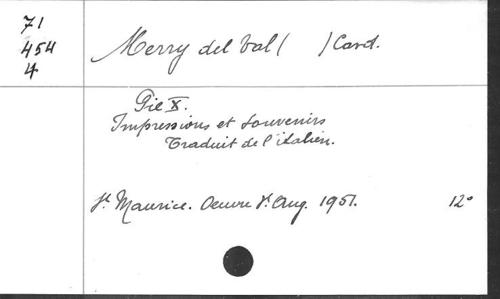 71
454
4
Merry del Val (     ) Card.
Pie X.
Impressions et Souvenirs
Traduit de l'italien.
St. Maurice. Oeuvre St. Aug. 1951.
12°